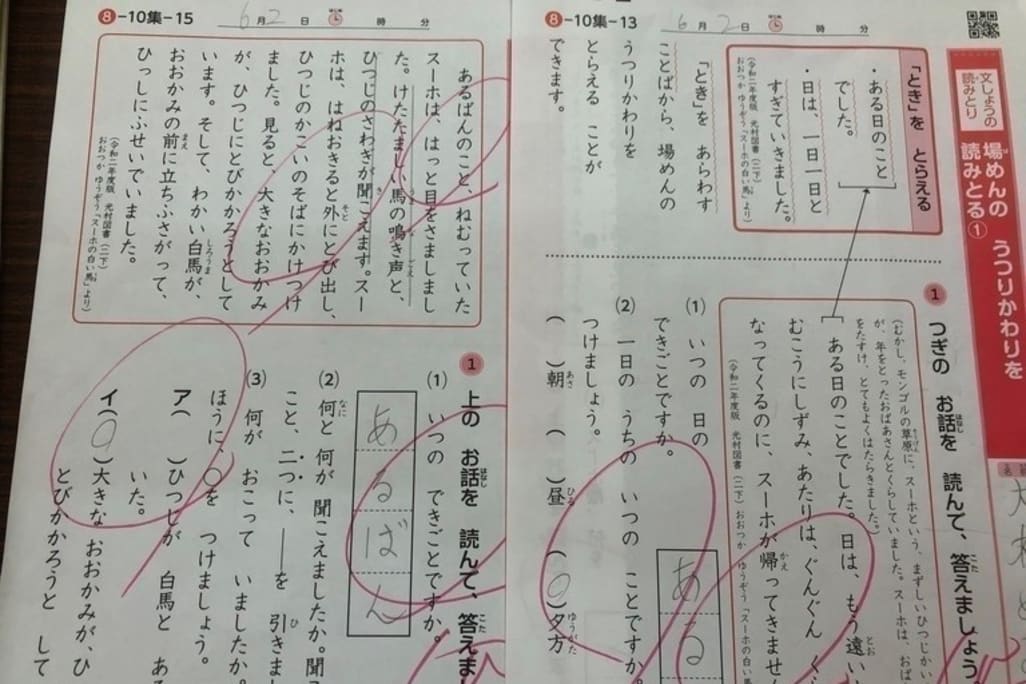 ⑧-10集-13
6月2日 時 分
文しょうの
読みとり
場めんの うつりかわりを
読みとる①
「とき」を とらえる
・ある日のこと
でした。
・日は、一日一日と
すぎていきました。
(令和二年度版 光村図書(二下)
おおつか ゆうぞう「スーホの白い馬」より)
「とき」を あらわす
ことばから、場めんの
うつりかわりを
とらえる ことが
できます。
1 つぎの お話を 読んで、答えましょう
(むかし、モンゴルの草原に、スーホという、まずしいひつじかい
が、年をとったおばあさんとくらしていました。スーホは、おば
をたすけ、とてもよくはたらきました。)
ある日のことでした。日は、もう遠い
むこうにしずみ、あたりは、ぐんぐん く
なってくるのに、スーホが帰ってきません
(令和二年度版 光村図書(二下)おおつか ゆうぞう「スーホの白い馬
(1) いつの 日の
できごとですか。
ある
(2) 一日の うちの いつの ことですか。
つけましょう。
( )朝 ( )昼 (○)夕方
⑧-10集-15
6月2日 時 分
あるばんのこと、ねむっていた
スーホは、はっと目をさましまし
た。けたたましい馬の鳴き声と、
ひつじのさわぎが聞こえます。スー
ホは、はねおきると外にとび出し、
ひつじのかこいのそばにかけつけ
ました。見ると、大きなおおかみ
が、ひつじにとびかかろうとして
います。そして、わかい白馬が、
おおかみの前に立ちふさがって、
ひっしにふせいでいました。
(令和二年度版 光村図書(二下)
おおつか ゆうぞう「スーホの白い馬」より)
1 上の お話を 読んで、答えま
(1) いつの できごとですか。
あるばん
(2) 何と 何が 聞こえましたか。聞
こと、二つに、――を 引きま
(3) 何が おこって いましたか。
ほうに、○を つけましょう。
ア( )ひつじが 白馬と あ
いた。
イ(○)大きな おおかみが、ひ
とびかかろうと して